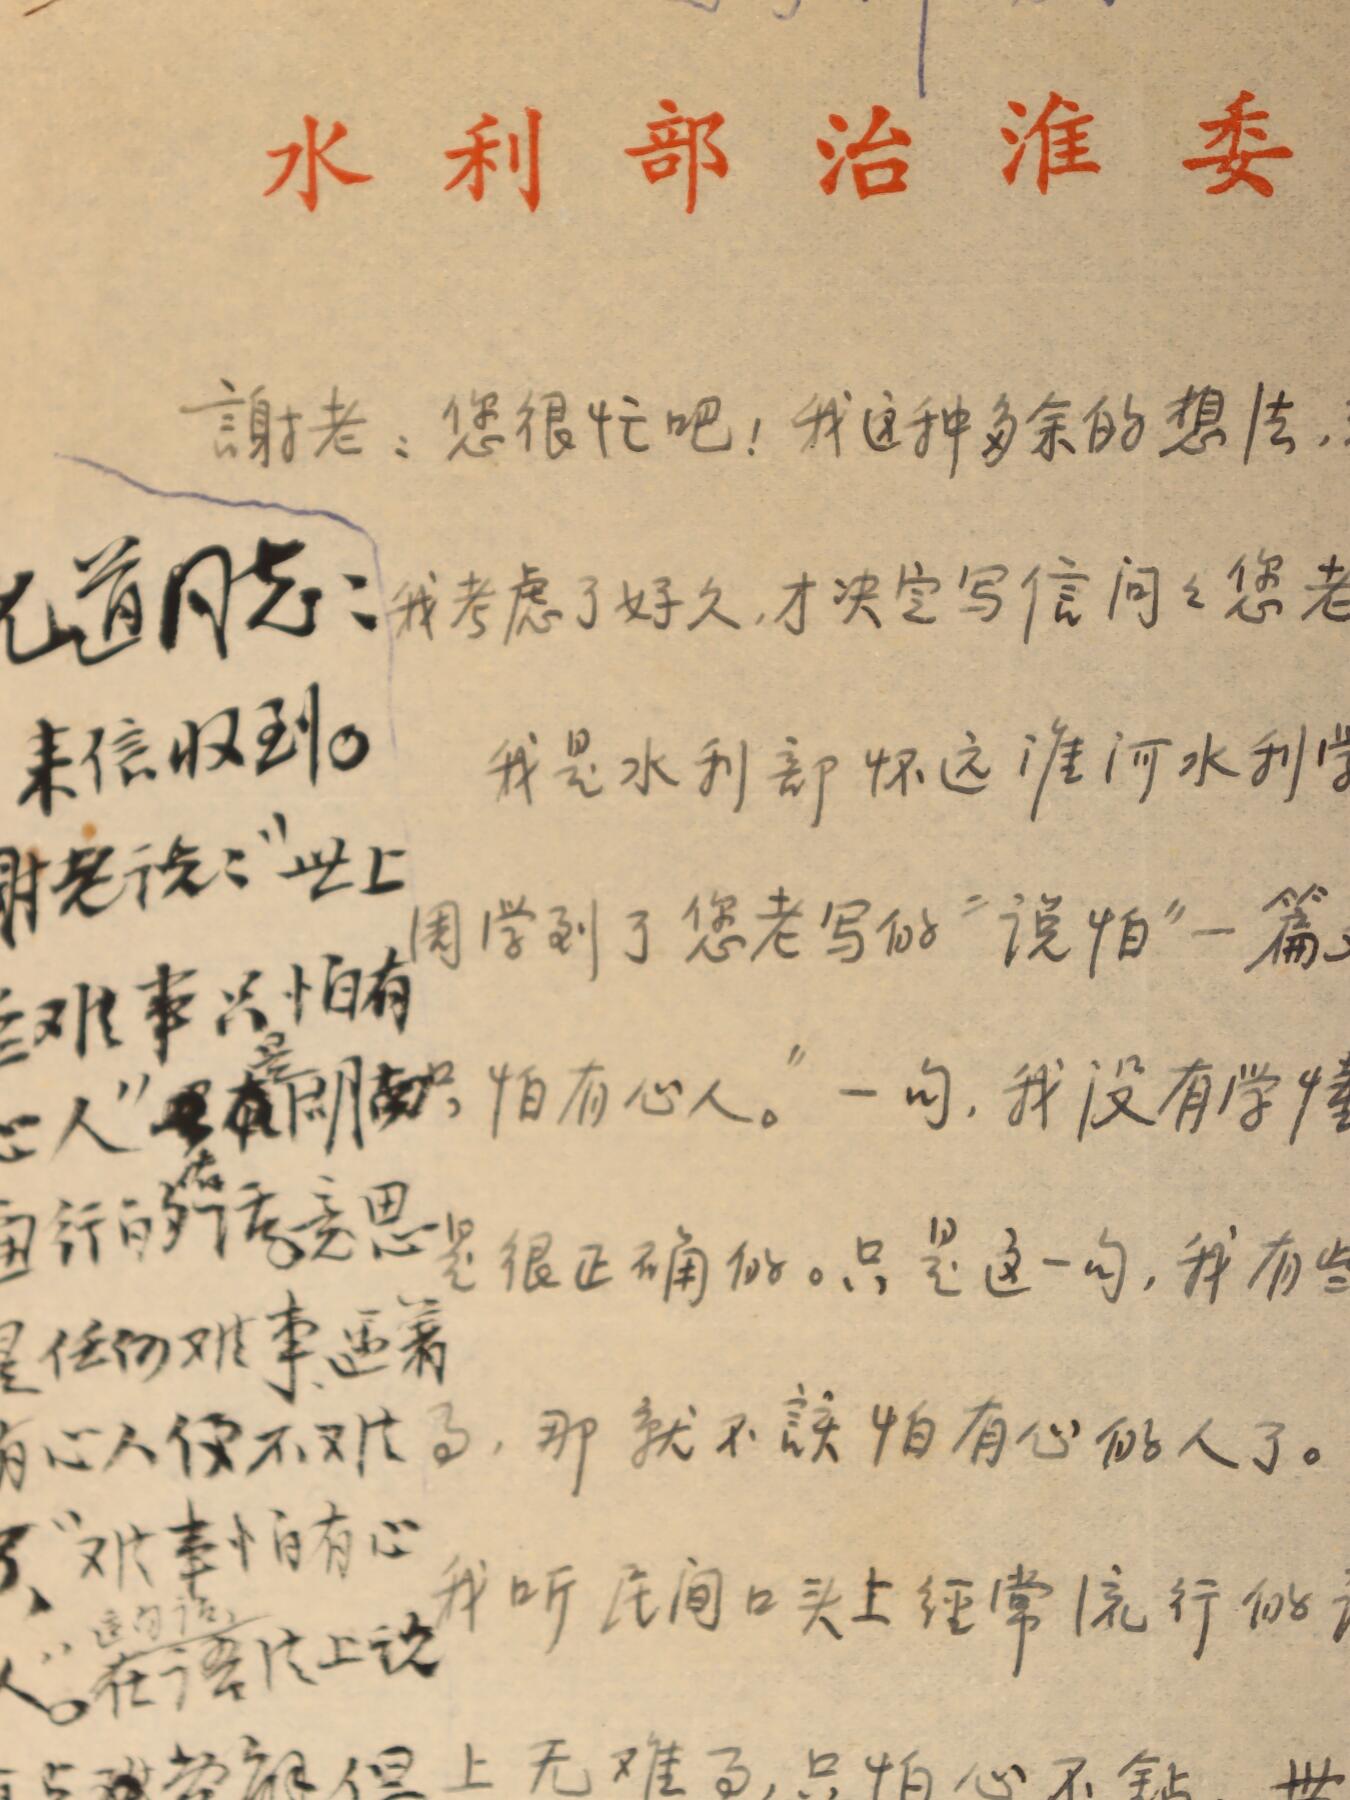 水利部治淮委
謝老：您很忙吧！我这种多余的想法，
我考虑了好久，才决定写信问々您老
我是水利部怀远淮河水利学
周学到了您老写的“说怕”一篇
只怕有心人。”一句，我没有学懂
是很正确的。只是这一句，我有些
了，那就不該怕有心的人了。
我听民间口头上经常流行的
上无难了，只怕心不钻，世
道同志：
来信收到。
谢老说：“世上
难事只怕有
心人”是民间
流行的古话，意思
是任何难事逥着
有心人便不难
了、“难事怕有心
人”。这句话在语法上说